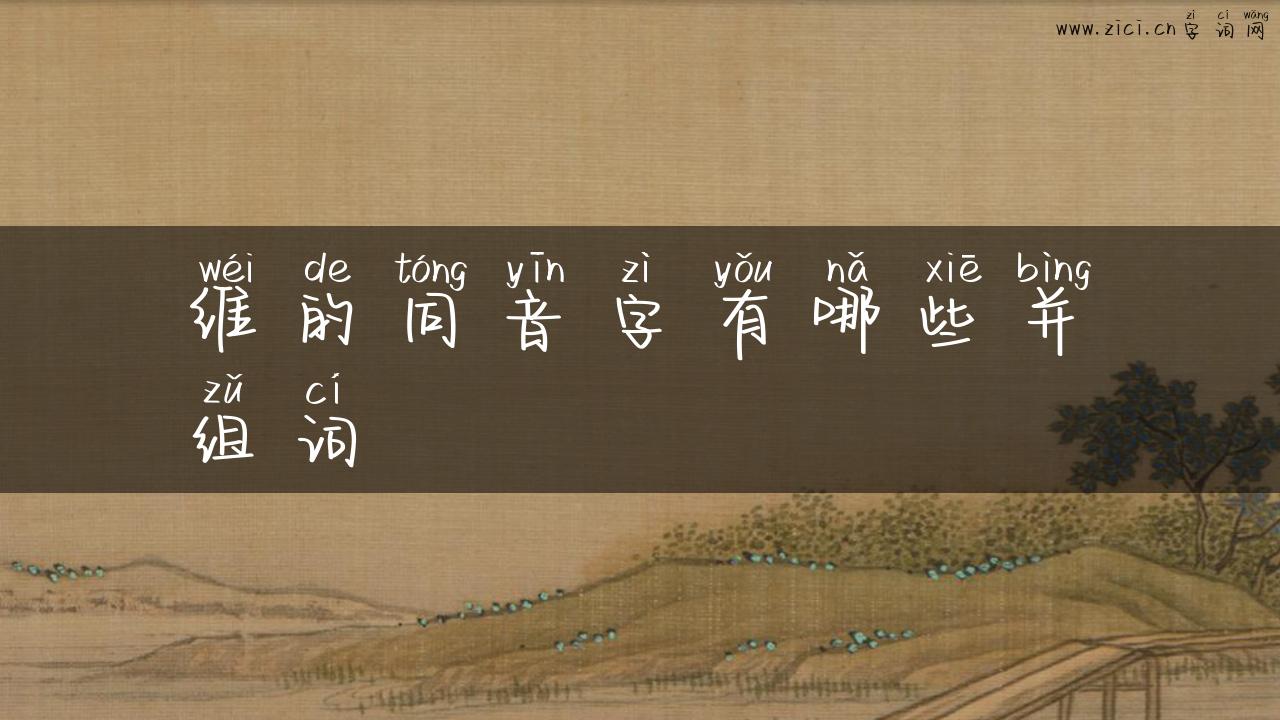 zì cí wǎng
www.zici.cn字词网
wéi de tóng yīn zì yǒu nǎ xiē bìng
维的同音字有哪些并
zǔ cí
组词